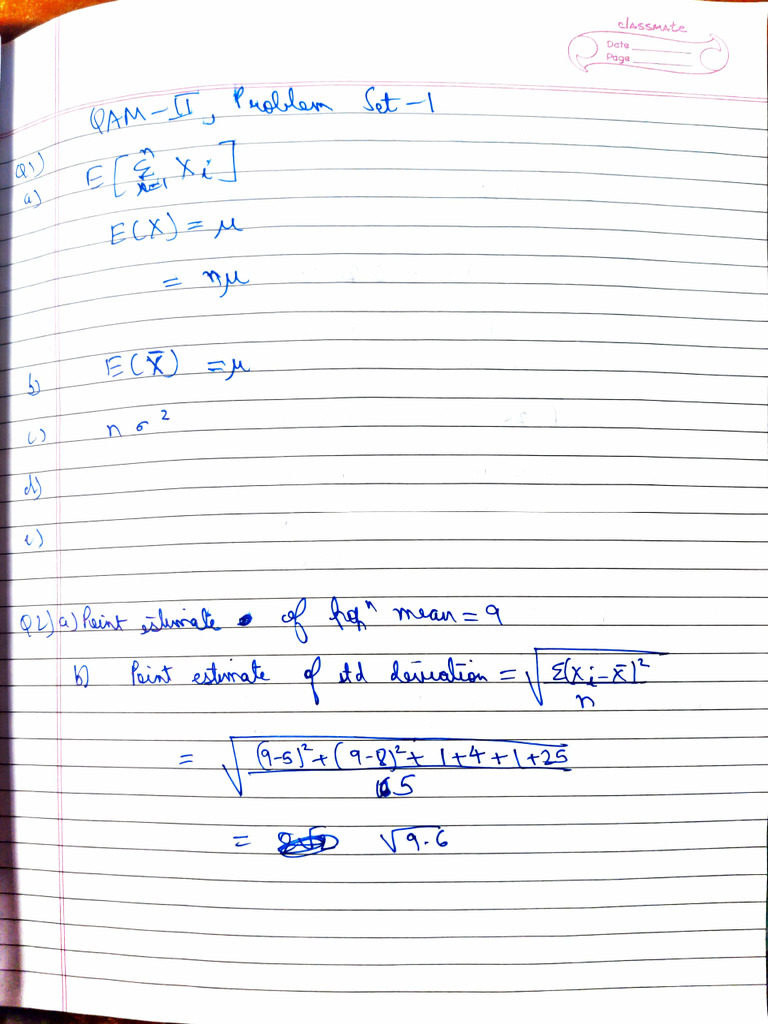 classmate
Date
Page
QAM-II, Problem Set-1
Q1)
a) E[Σⁿᵢ₌₁ Xi]
E(X) = μ
= nμ
b) E(X̄) = μ
c) n σ²
d)
e)
Q2) a) Point estimate of popⁿ mean = 9
b) Point estimate of std deviation = √(Σ(Xi-X̄)²/n)
= √(((9-5)²+(9-8)²+1+4+1+25)/5)
= √9.6